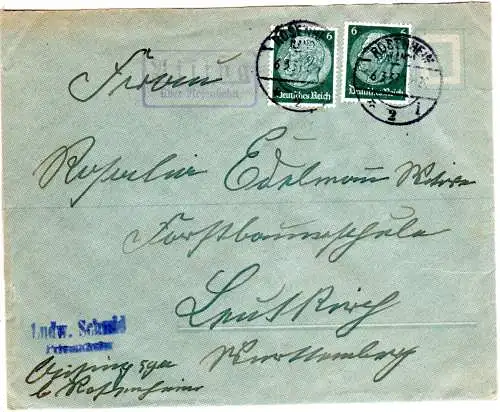 6 6
Deutsches Reich Deutsches Reich
ROSENHEIM
2
über Rosenheim
Frau
Rosalia Edelmann Witwe
Forstbaumschule
Leutkirch
Württemberg
Ludw. Schmid
b. Rosenheim